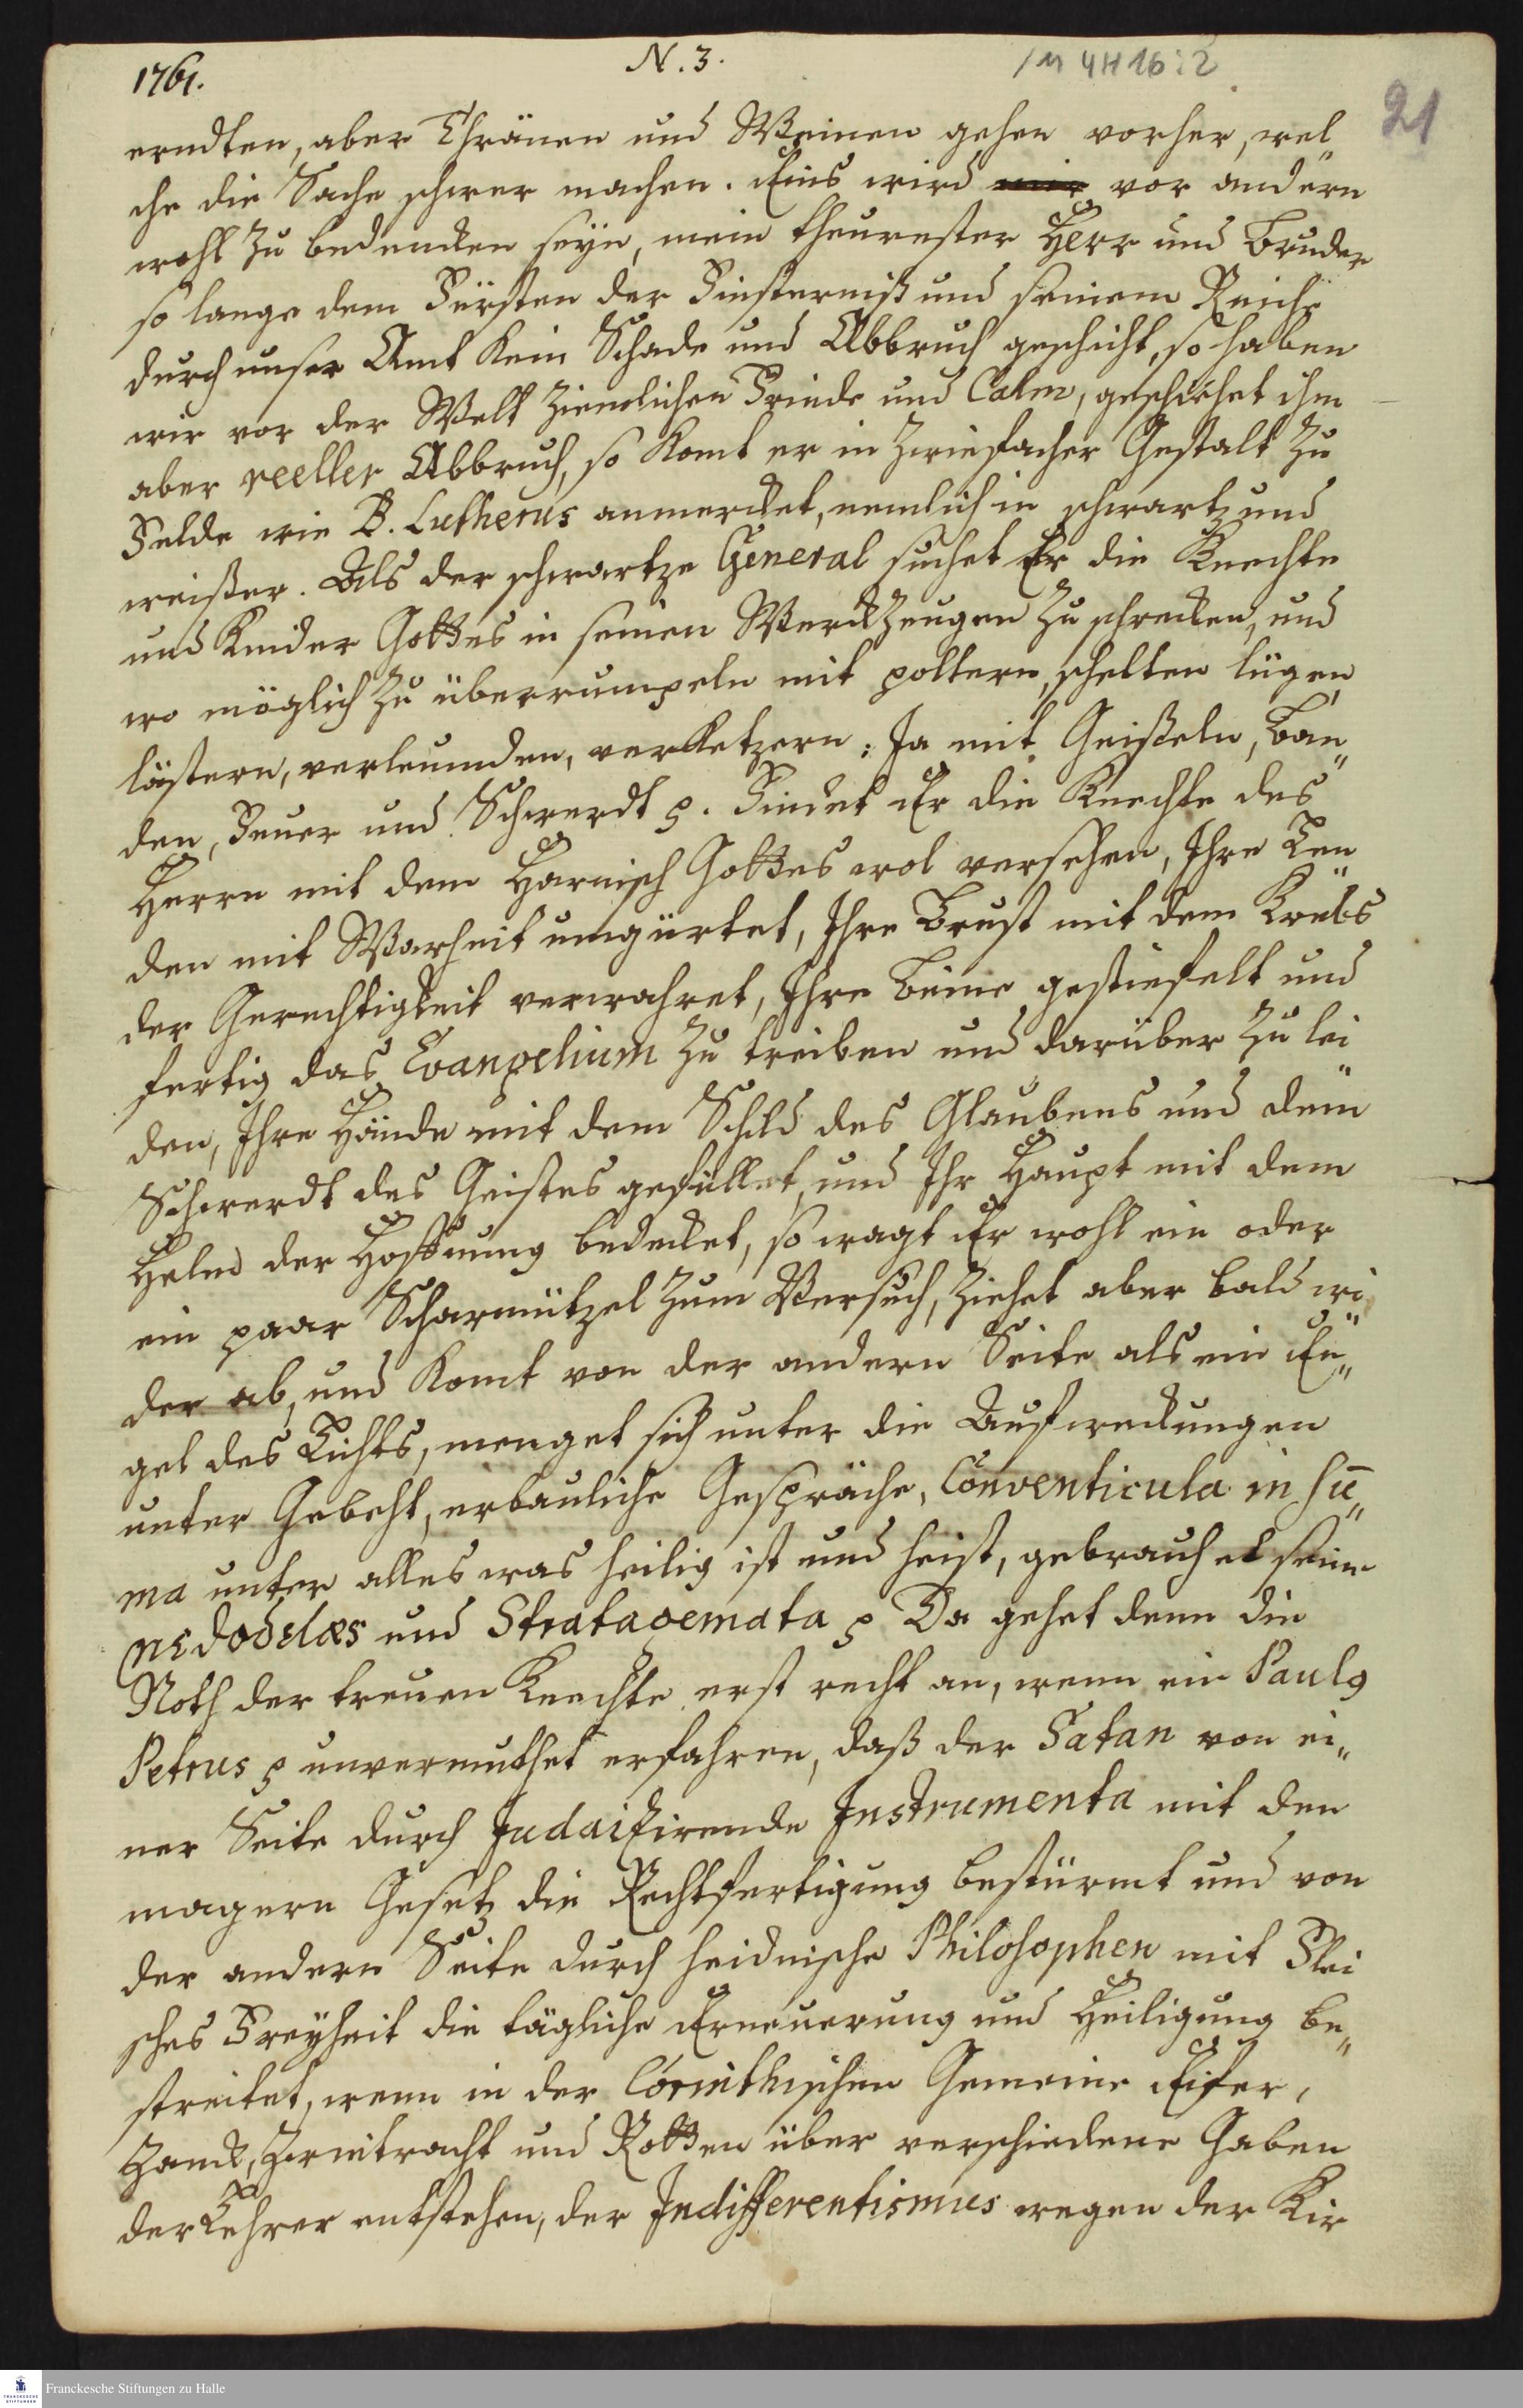 1761.
N. 3.
/M 4H 16:2
21
erndten, aber Thränen und Weinen gehen vorher, wel„
che die Sache schwer machen. Eins wird mir vor andern
wohl zu bedencken seyn, mein theurester Herr und Bruder
so lange dem Fürsten der Finsterniß und seinem Reiche
durch unser Amt kein Schade und Abbruch geschicht, so haben
wir vor der Welt ziemlichen Friede und Calm, geschiehet ihm
aber reeller Abbruch, so komt er in zwiefacher Gestalt zu
Felde wie B. Lutherus anmercket, nemlich in schwartz und
weisser. Als der schwartze General suchet Er die Knechte
und Kinder Gottes in seinen Werckzeugen zu schrecken, und
wo möglich zu überrumpeln mit poltern, schelten lügen,
lästern, verleumden, verketzern; Ja mit Geißeln, Ban„
den, Feuer und Schwerdt p. Findet Er die Knechte des
Herrn mit dem Harnisch Gottes wol versehen, Ihre Len„
den mit Warheit umgürtet, Ihre Brust mit dem Krebs
der Gerechtigkeit verwahret, Ihre Beine gestiefelt und
fertig das Evangelium zu treiben und darüber zu lei„
den, Ihre Hände mit dem Schild des Glaubens und dem
Schwerdt des Geistes gefüllet, und Ihr Haupt mit dem
Helm der Hoffnung bedecket, so wagt Er wohl ein oder
ein paar Scharmützel zum Versuch, ziehet aber bald wi„
der ab, und komt von der andern Seite als ein En„
gel des Lichts, menget sich unter die Aufweckungen
unter Gebeht, erbauliche Gespräche, Conventicula in Su̅„
ma unter alles was heilig ist und heist, gebrauchet seine
und Stratagemata p Da gehet denn die
Noth der treuen Knechte erst recht an, wenn ein Paulg
Petrus p unvermuthet erfahren, daß der Satan von ei„
ner Seite durch Judaizirende Instrumenta mit den
magern Gesetz die Rechtfertigung bestürmt und von
der andern Seite durch heidnische Philosophen mit Flei
sches Freyheit die tägliche Erneuerung und Heiligung be„
streitet, wenn in der Corinthischen Gemeine Eifer,
Zanck, Zwietracht und Rotten über verschiedene Gaben
der Lehrer entstehen, der Indifferentismus wegen der Kir
Franckesche Stiftungen zu Halle